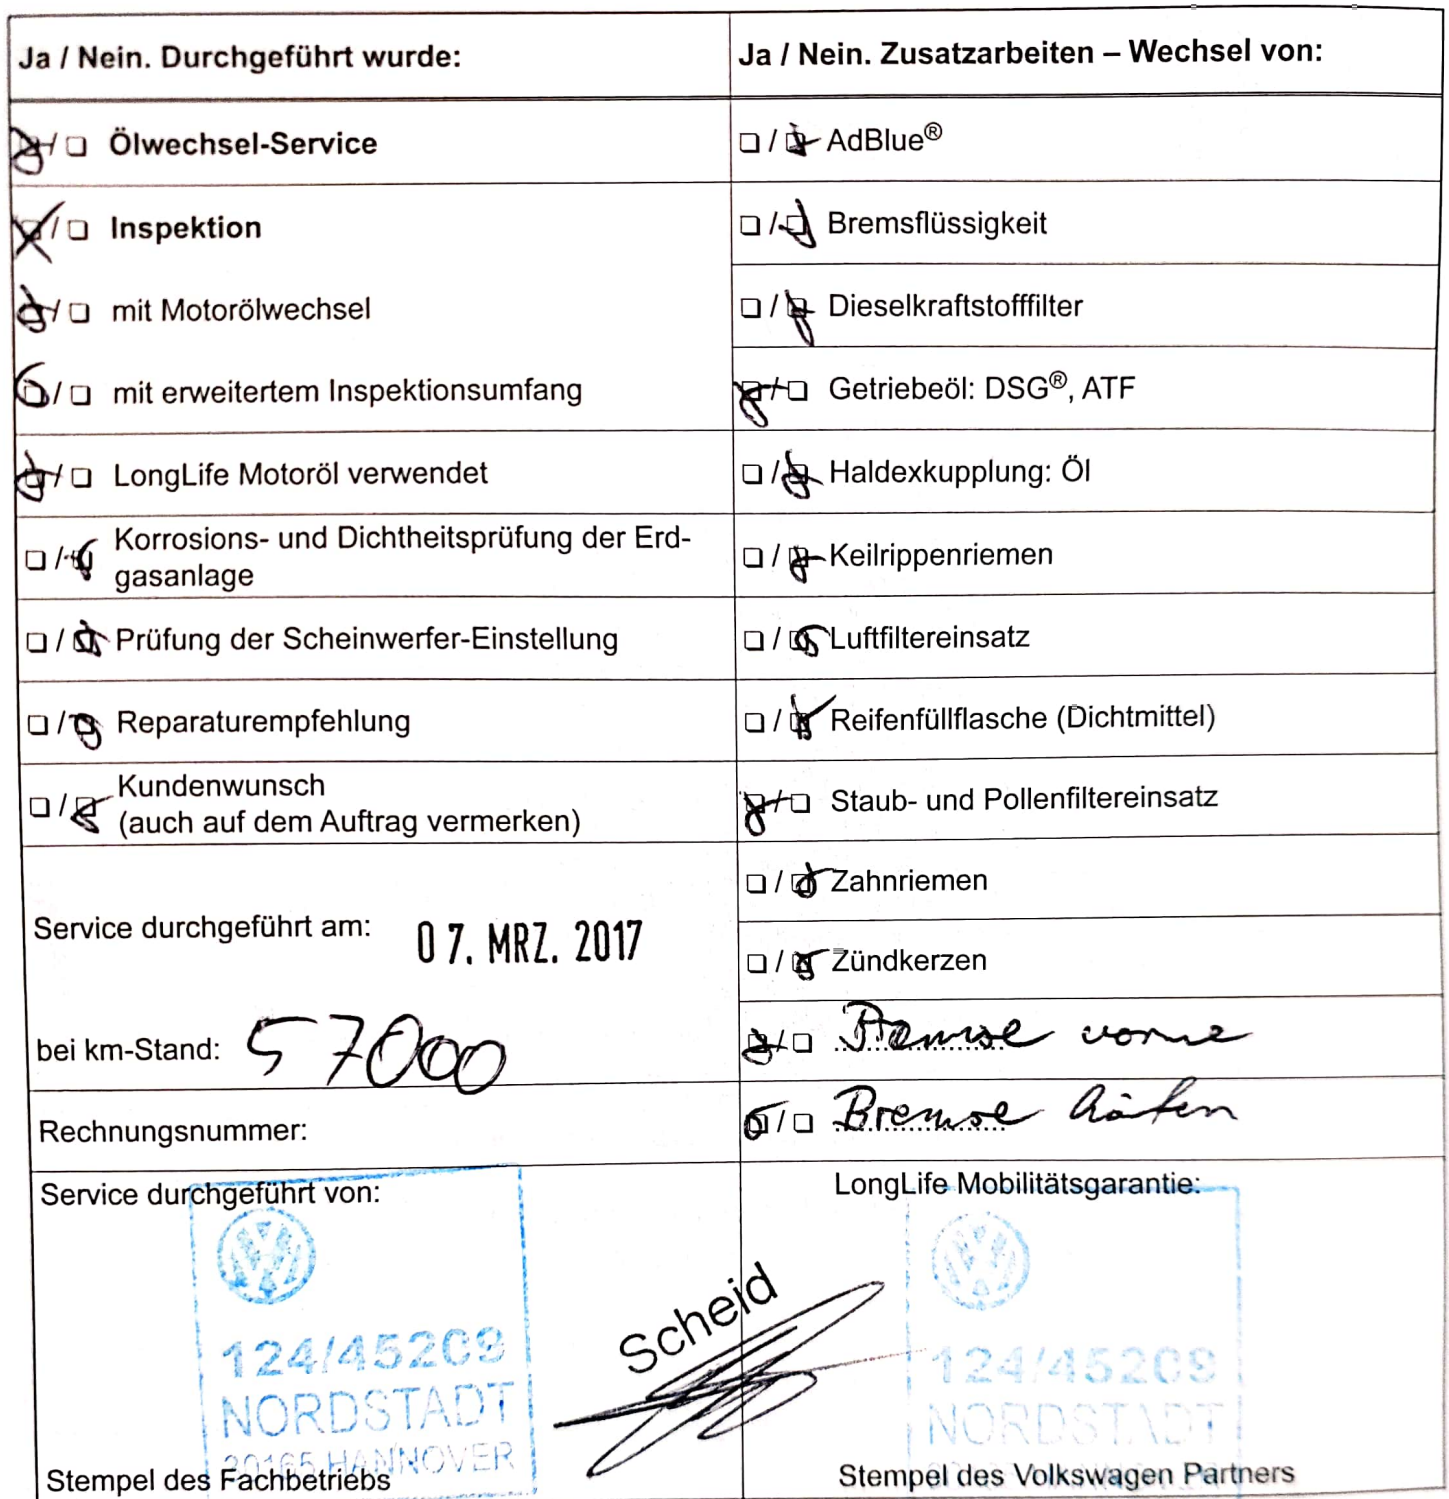 Ja / Nein. Durchgeführt wurde:
Ölwechsel-Service
Inspektion
mit Motorölwechsel
mit erweitertem Inspektionsumfang
LongLife Motoröl verwendet
Korrosions- und Dichtheitsprüfung der Erd-
gasanlage
Prüfung der Scheinwerfer-Einstellung
Reparaturempfehlung
Kundenwunsch
(auch auf dem Auftrag vermerken)
Service durchgeführt am: 07. MRZ. 2017
bei km-Stand: 57000
Rechnungsnummer:
Service durchgeführt von:
124/45209
NORDSTADT
30165 HANNOVER
Stempel des Fachbetriebs
Scheid
Ja / Nein. Zusatzarbeiten – Wechsel von:
AdBlue®
Bremsflüssigkeit
Dieselkraftstofffilter
Getriebeöl: DSG®, ATF
Haldexkupplung: Öl
Keilrippenriemen
Luftfiltereinsatz
Reifenfüllflasche (Dichtmittel)
Staub- und Pollenfiltereinsatz
Zahnriemen
Zündkerzen
Bremse vorne
Bremse hinten
LongLife Mobilitätsgarantie:
124/45209
NORDSTADT
Stempel des Volkswagen Partners